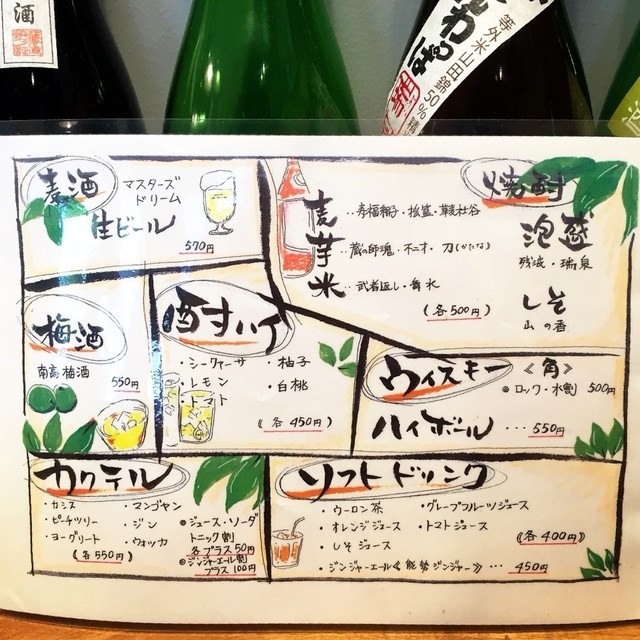 酒
等外米山田錦50%精
酒
麦酒
マスターズ
ドリーム
生ビール
570円
焼酎
麦‥寿福絹子・松盛・
芋‥蔵の師魂・不二才・刀(かたな)
米‥武者返し・舞水
(各500円)
泡盛
残波・瑞泉
しそ
山の香
梅酒
南高梅酒
550円
酎ハイ
・シークァーサ ・柚子
・レモン ・白桃
・トマト
《各450円》
ウィスキー
《角》
◎ロック・水割 500円
ハイボール ‥‥550円
カクテル
・カシス ・マンゴヤン
・ピーチツリー ・ジン
・ヨーグリート ・ウォッカ
(各550円)
◎ジュース・ソーダ
トニック割
各プラス50円
◎ジンジャーエール割
プラス100円
ソフトドリンク
・ウーロン茶 ・グレープフルーツジュース
・オレンジジュース ・トマトジュース
・しそジュース
《各400円》
・ジンジャーエール《能勢ジンジャー》‥‥450円